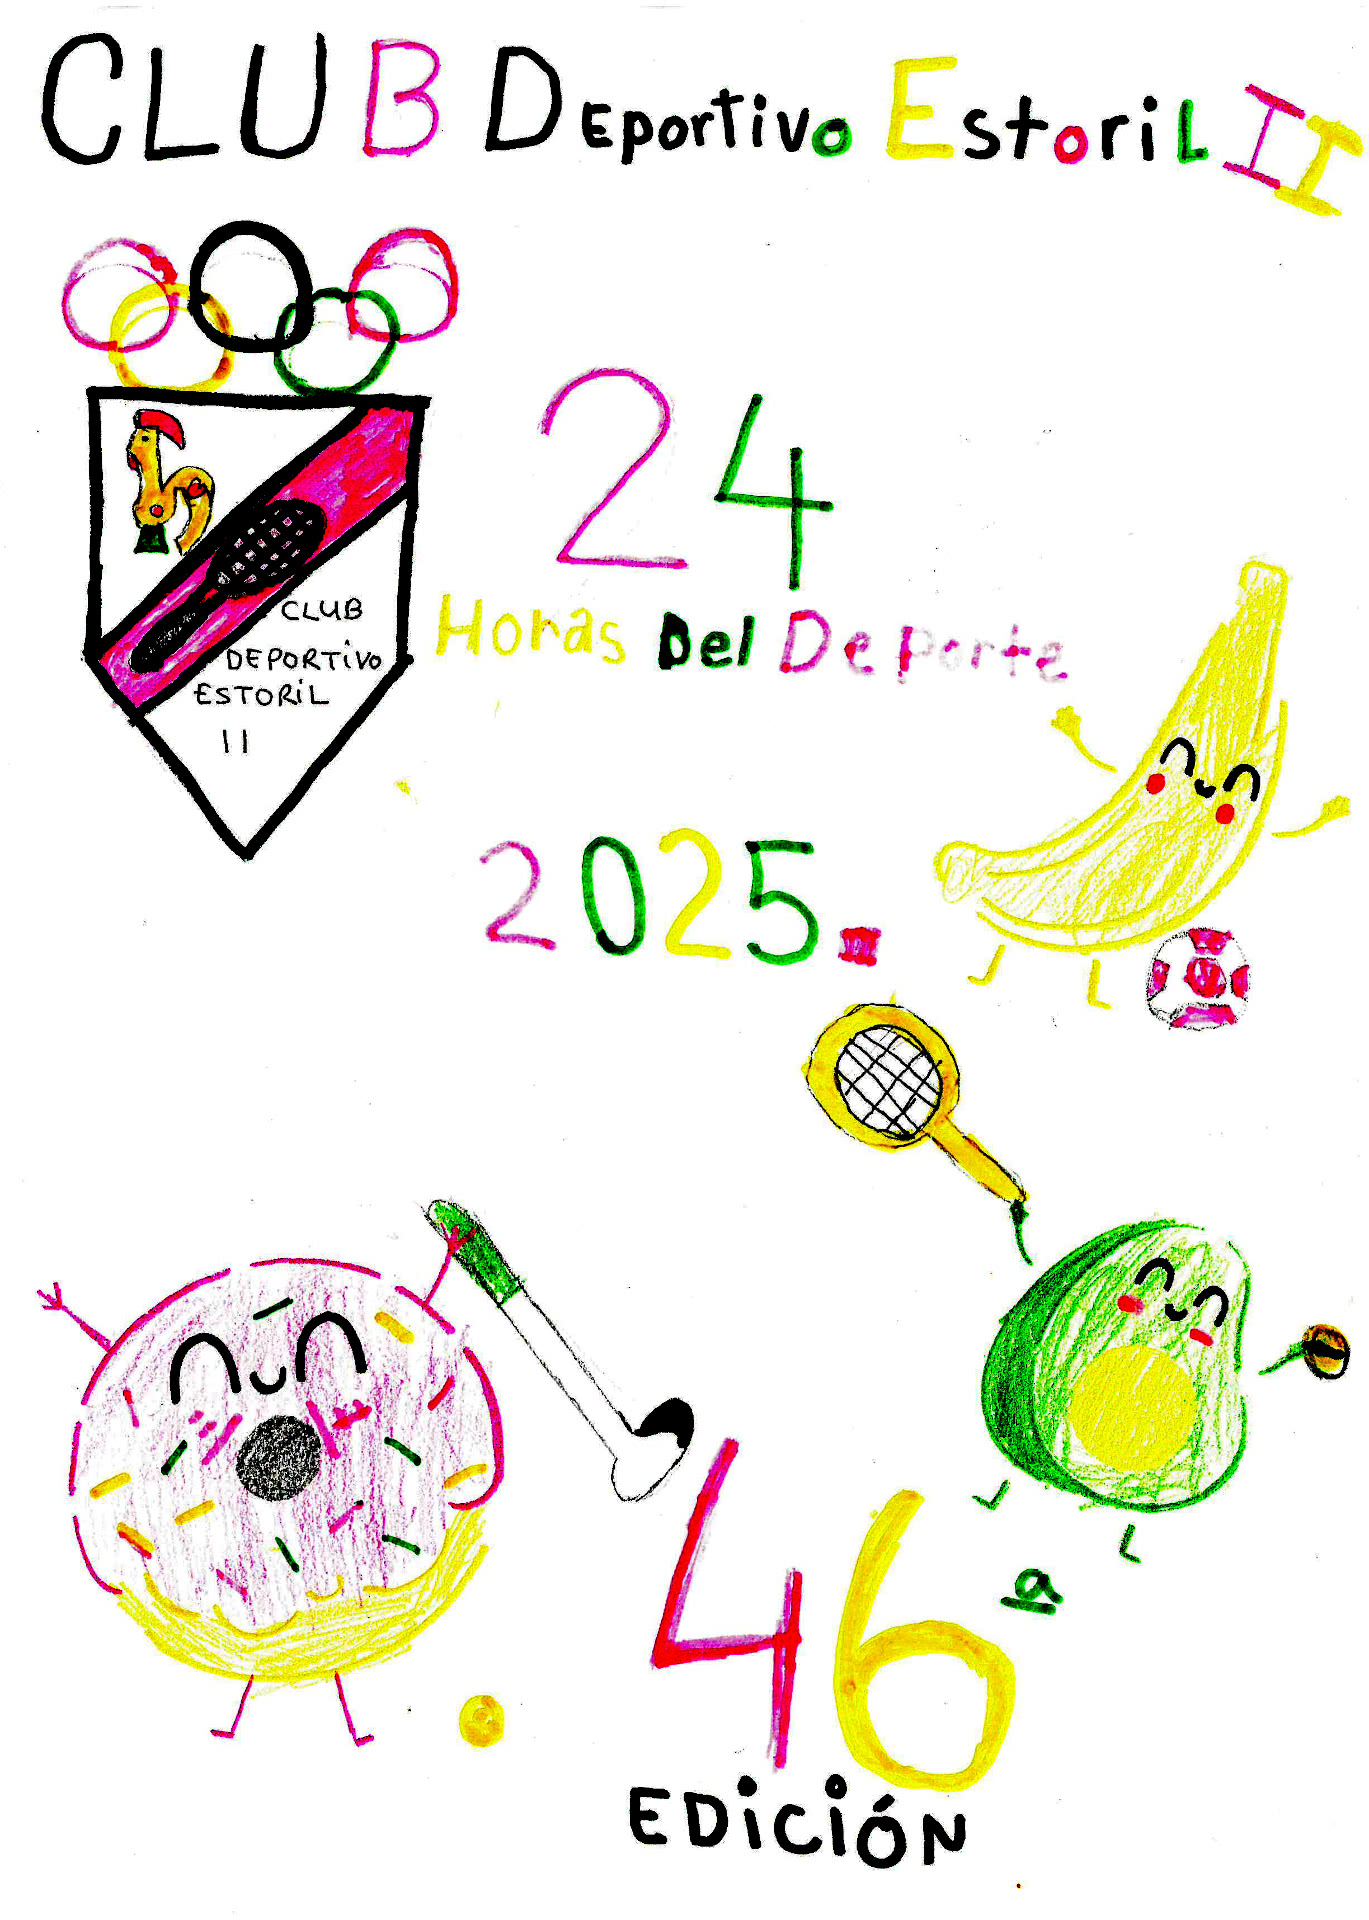 CLUB DEportivo EstoriL II
24
CLUB
DEPORTivO
ESTORiL
II
Horas Del DePorte
2025.
46ª
EDiCiÓN